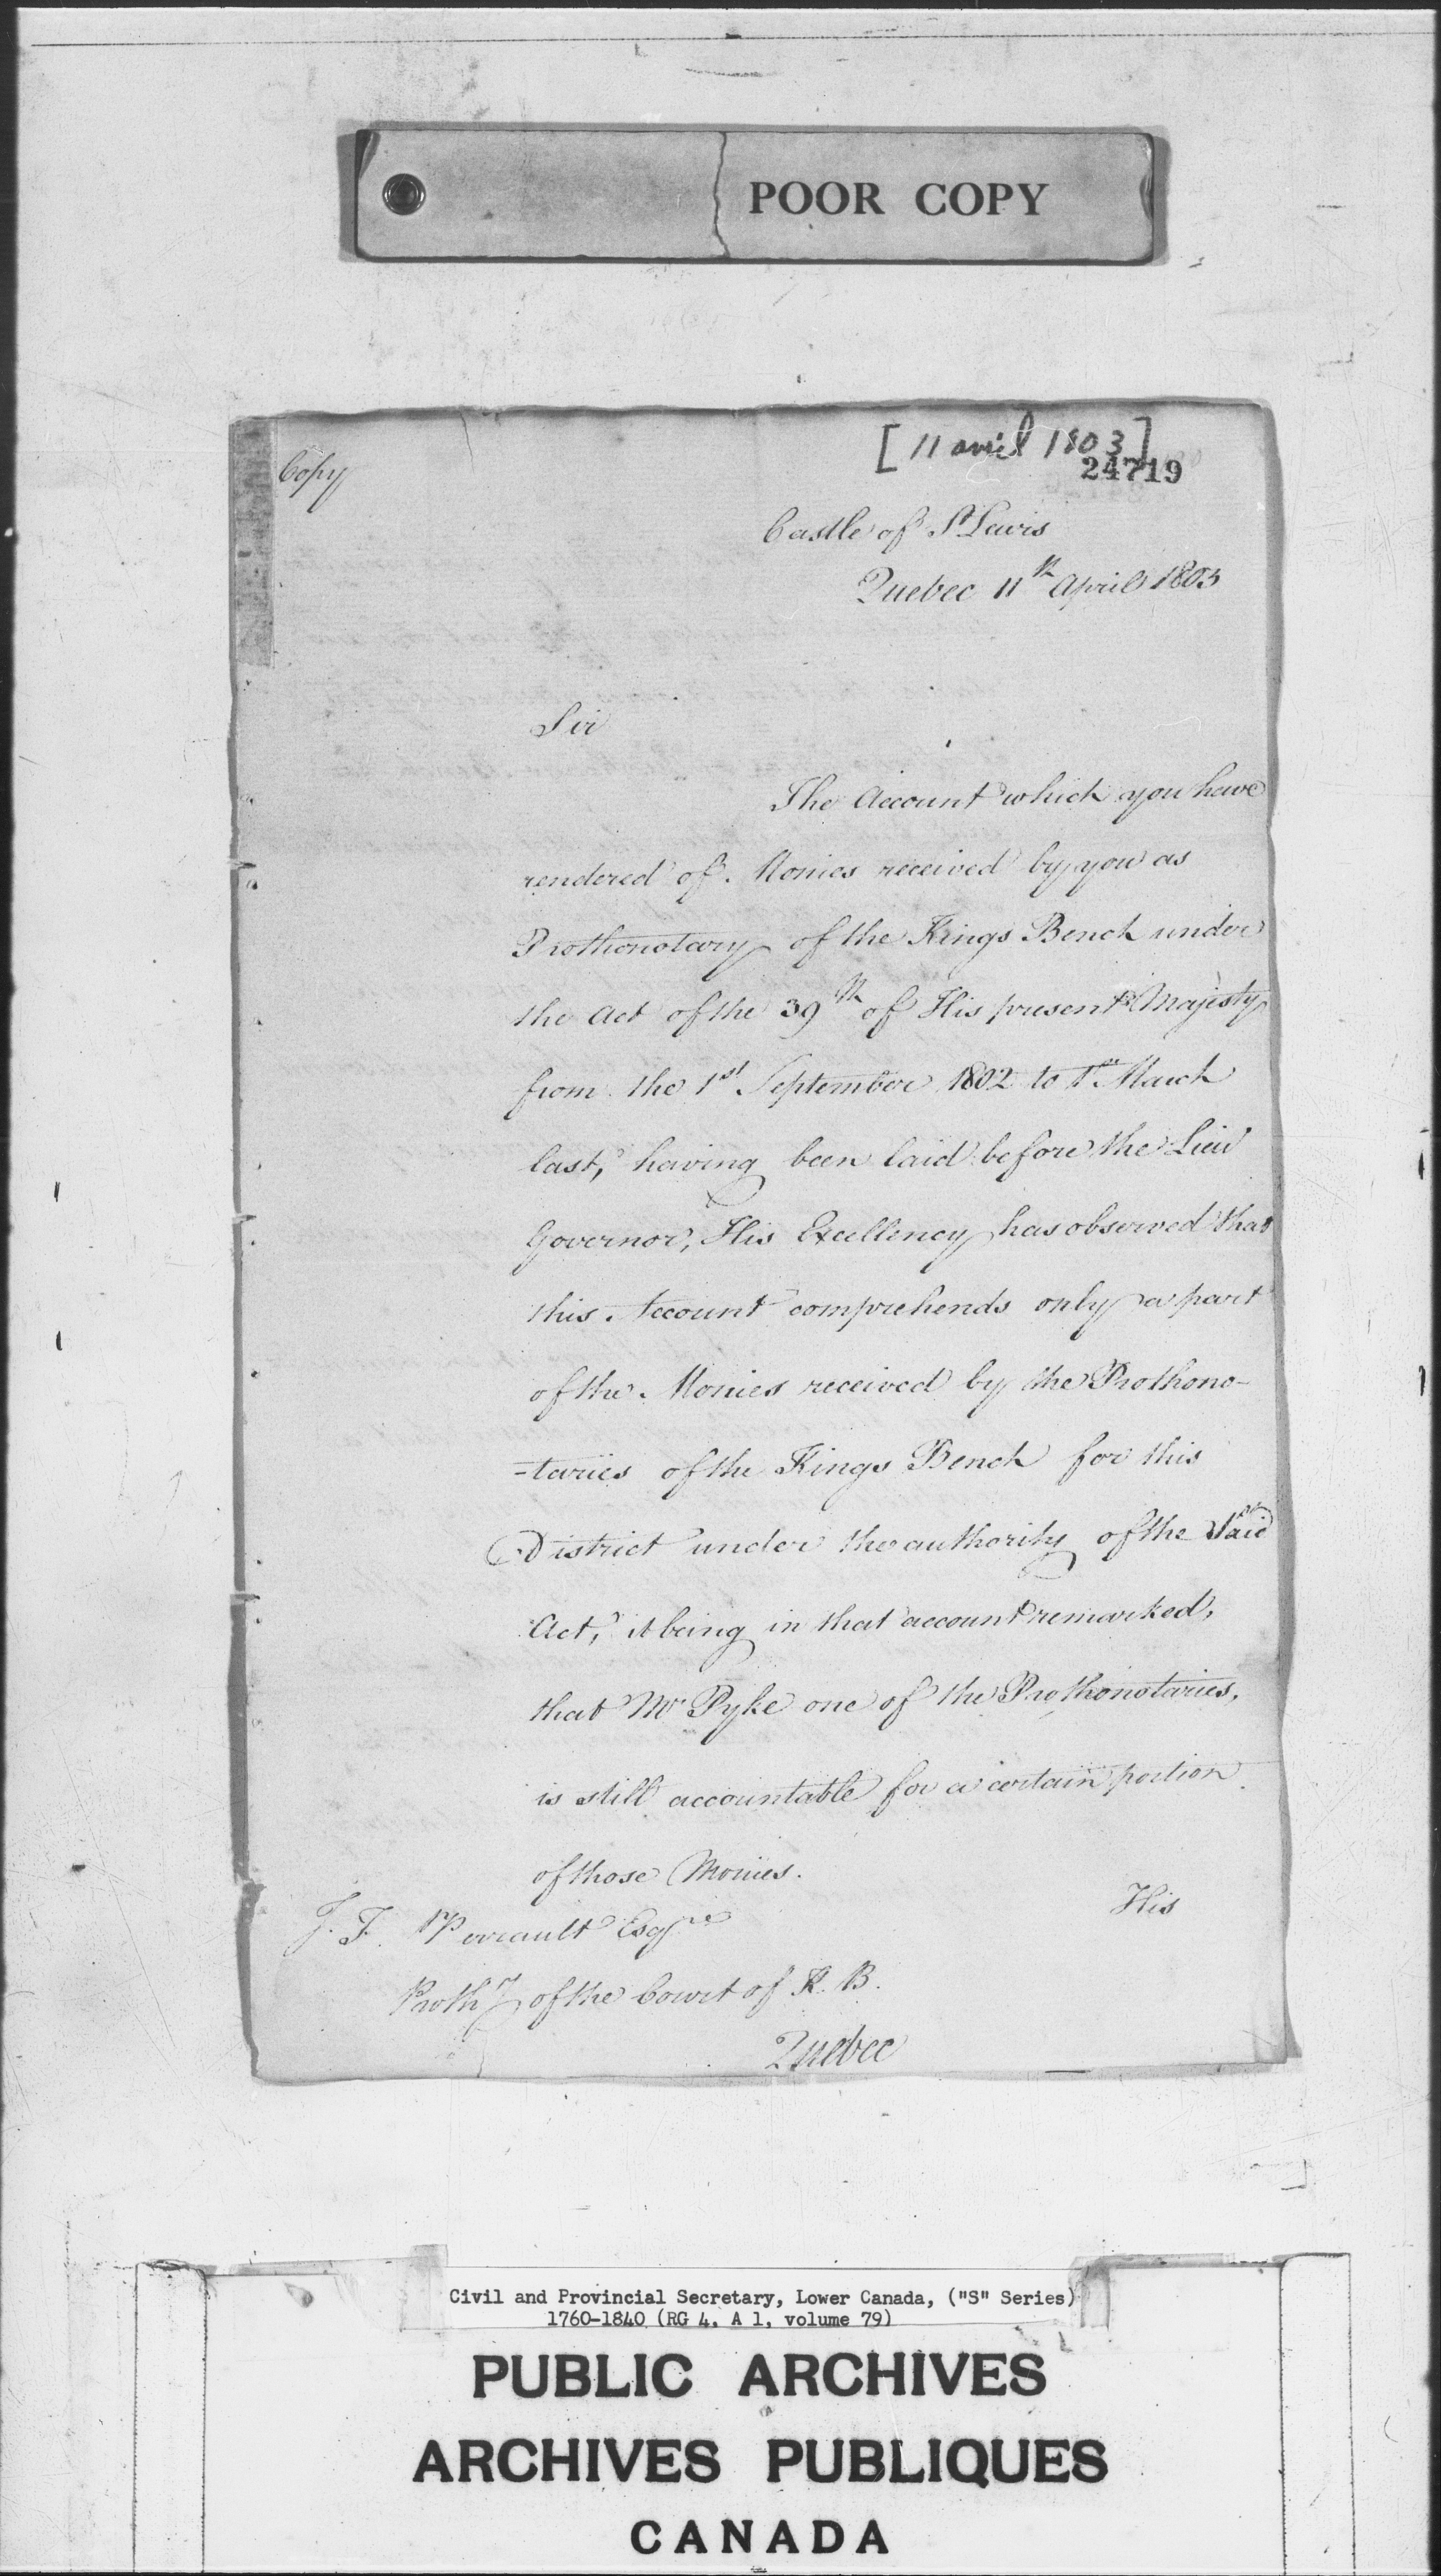 POOR COPY
[11 avril 1803]
24719
Copy
Castle of St Lewis
Quebec 11th April 1803
Sir
The Account which you have
rendered of Monies received by you as
Prothonotary of the Kings Bench under
the Act of the 39th of His present Majesty
from the 1st September 1802 to 1st March
last, having been laid before the Lieu
Governor, His Excellency has observed that
this Account comprehends only a part
of the Monies received by the Prothono-
-taries of the Kings Bench for this
District under the authority of the said
Act, it being in that account remarked,
that Mr Pyke one of the Prothonotaries,
is still accountable for a certain portion
of those Monies.
His
J. F. Perrault Esqre
Prothy of the Court of K. B.
Quebec
Civil and Provincial Secretary, Lower Canada, ("S" Series)
1760-1840 (RG 4, A 1, volume 79)
PUBLIC ARCHIVES
ARCHIVES PUBLIQUES
CANADA